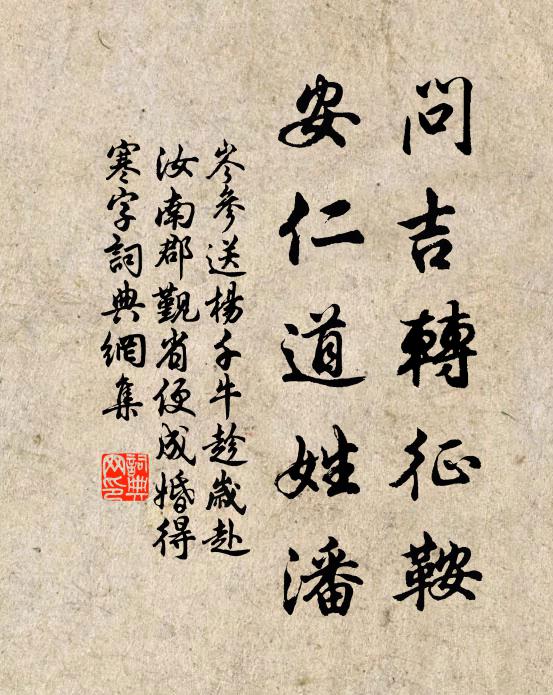 問吉轉征鞍
安仁道姓潘
岑參送楊千牛趁歲赴
汝南郡覲省便成婚得
寒字詞典網集
詞典
网印